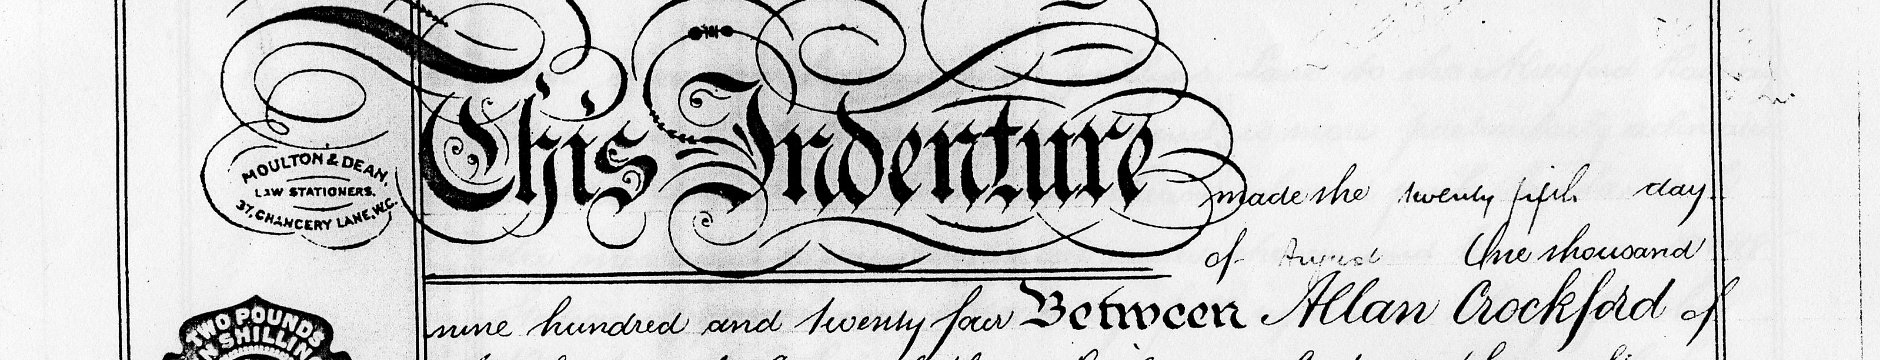 MOULTON & DEAN,
LAW STATIONERS.
37, CHANCERY LANE, W.C.
This Indenture
made the twenty fifth day
of August One thousand
nine hundred and twenty four Between Allan Crockford of
TWO POUNDS
N SHILLIN